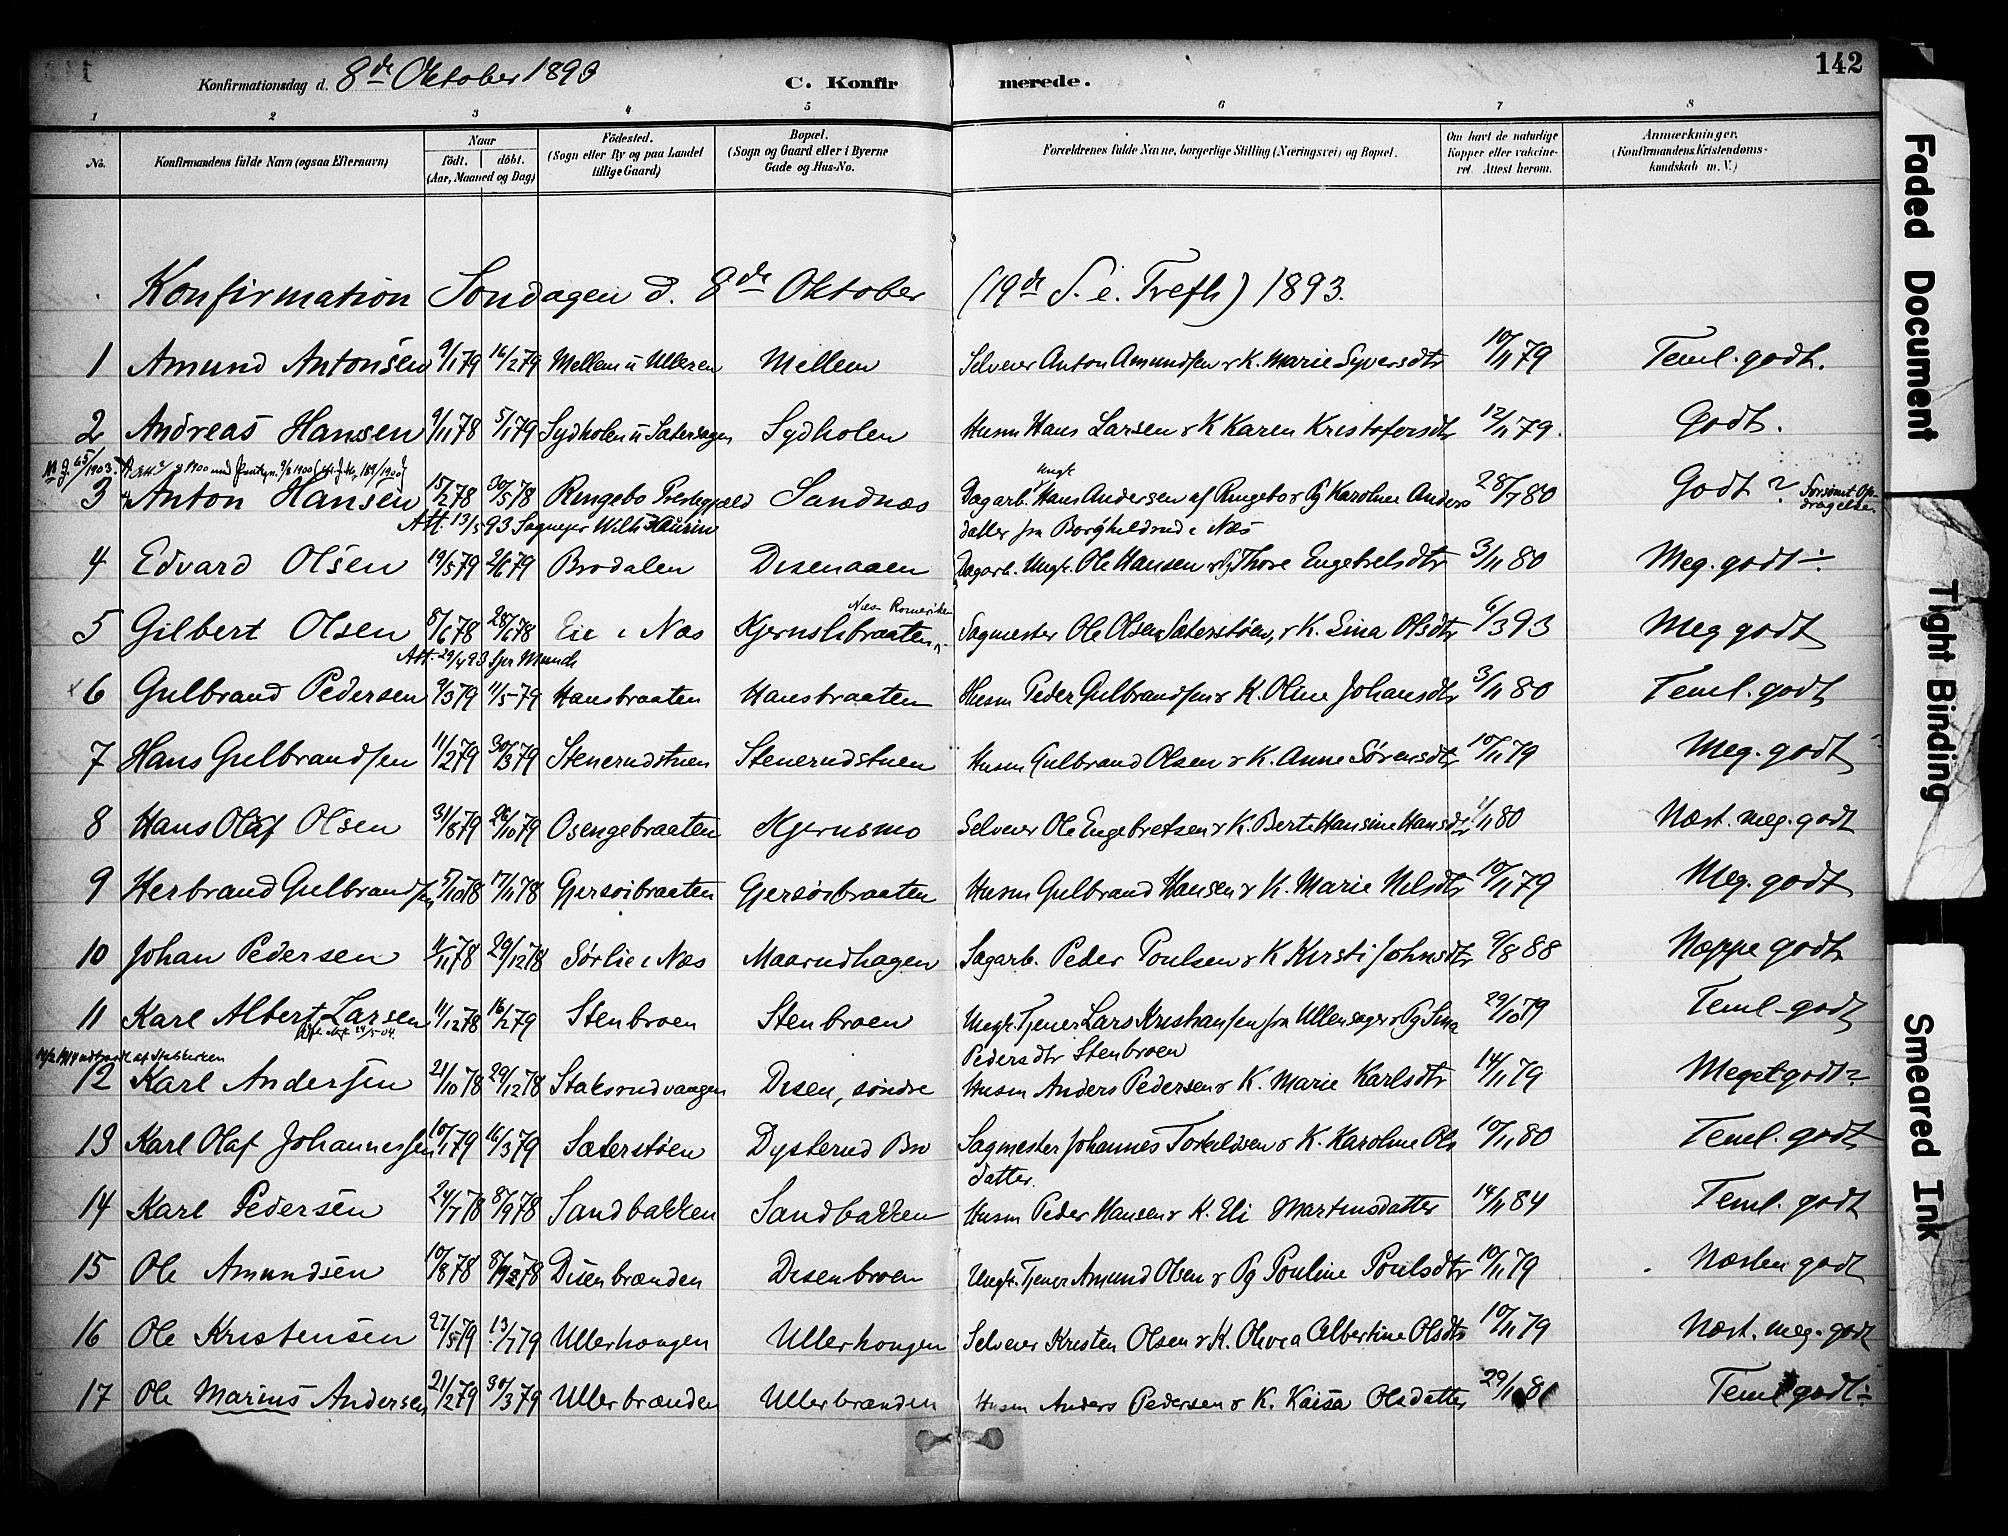 142
Konfirmationsdag d. 8de Oktober 1893
C. Konfirmerede.
1 2 3 4 5 6 7 8
No. Konfirmandens fulde Navn (ogsaa Efternavn) Naar født. døbt. (Aar, Maaned og Dag) Fødested. (Sogn eller By og paa Landet tillige Gaard) Bopæl. (Sogn og Gaard eller i Byerne Gade og Hus-No. Forældrenes fulde Navne, borgerlige Stilling (Næringsvei) og Bopæl. Om havt de naturlige Kopper eller vakcineret. Attest herom. Anmærkninger. (Konfirmandens Kristendomskundskab m. V.)
Konfirmation Søndagen d. 8de Oktober (19de S. e. Trefh) 1893.
1 Amund Antonsen 9/1 79 16/2 79 Mellem u Ulleren Mellem Selveier Anton Amundsen & K. Marie Syversdtr 10/11 79 Teml. godt.
2 Andreas Hansen 9/11 78 5/1 79 Sydholen u Sætersagen Sydholen Husm Hans Larsen & K Karen Kristofersdtr 12/11 79. Godt.
3 Anton Hansen 15/2 78 30/5 78 Ringebo Prestegjæld Sandnæs Dagarb. Ungk Hans Andersen af Ringebo & Pg Karoline Anders 28/7 80 Godt? Forsømt Opdragelse.
Att. 13/5 93 Sogneper Wilh
datter fra Borghildrud i Næs
4 Edvard Olsen 19/5 79 2/6 79 Brodalen Disenaaen Dagarb. Ungk. Ole Hansen & Pg Thore Engebretsdtr 3/11 80 Meg. godt ÷.
Næs Romerike
5 Gilbert Olsen 8/6 78 28/6 78 Eie i Næs Kjernslibraaten Sagmester Ole Olsen Sæterstøen, & K. Lina Olsdtr 6/3 93 Meg godt
Att. 29/4 93 Spr Munch
6 Gulbrand Pedersen 9/3 79 11/5 79 Hansbraaten Hansbraaten Husm Peder Gulbrandsen & K. Oline Johansdtr 3/11 80 Teml. godt
7 Hans Gulbrandsen 11/2 79 30/3 79 Stenerudstuen Stenerudstuen Husm Gulbrand Olsen & K. Anne Sørensdtr 10/11 79 Meg. godt
8 Hans Olaf Olsen 31/8 79 26/10 79 Osengebraaten Kjernsmo Selveier Ole Engebretsen & K. Berte Hansine Hansdtr 1/11 80 Næst. meg. godt
9 Herbrand Gulbrandsen 5/10 78 17/11 78 Gjersøibraaten Gjersøibraaten Husm Gulbrand Hansen & K. Marie Nilsdtr 10/11 79 Meg. godt
10 Johan Pedersen 11/11 78 29/12 78 Sørlie i Næs Maarudhagen Sagarb. Peder Poulsen & K Kirsti Johnsdtr 9/8 88 Neppe godt
11 Karl Albert Larsen 11/12 78 16/2 79 Stenbroen Stenbroen Ungk. Tjener Lars Kristiansen fra Ullensager & Pg Lina 29/10 79 Teml. godt
Pedersdtr Stenbroen
12 Karl Andersen 21/10 78 29/12 78 Staksrudvangen Disen, søndre Husm Anders Pedersen & K. Marie Karlsdtr 14/11 79 Meget godt?
13 Karl Olaf Johannessen 10/1 79 16/3 79 Sæterstøen Dysterud Bro Sagmester Johannes Torkildsen & K. Karoline Ols 10/11 80 Teml. godt
datter.
14 Karl Pedersen 24/7 78 8/9 78 Sandbakken Sandbakken Husm Peder Hansen & K. Eli Martinsdatter 14/11 84 Teml. godt
15 Ole Amundsen 10/8 78 8/12 78 Disenbrænden Disenbroen Ungk. Tjener Amund Olsen & Pg Pouline Poulsdtr 10/11 79 Næsten godt
16 Ole Kristensen 27/5 79 13/7 79 Ullerhaugen Ullerhaugen Selveier Kristen Olsen & K. Olivia Albertine Olsdtr 10/11 79 Næst. meg. godt
17 Ole Marius Andersen 21/2 79 30/3 79 Ullerbrænden Ullerbrænden Husm Anders Pedersen & K. Kaisa Olsdatter 29/1 81 Teml godt ÷
Faded Document
Tight Binding
Smeared Ink